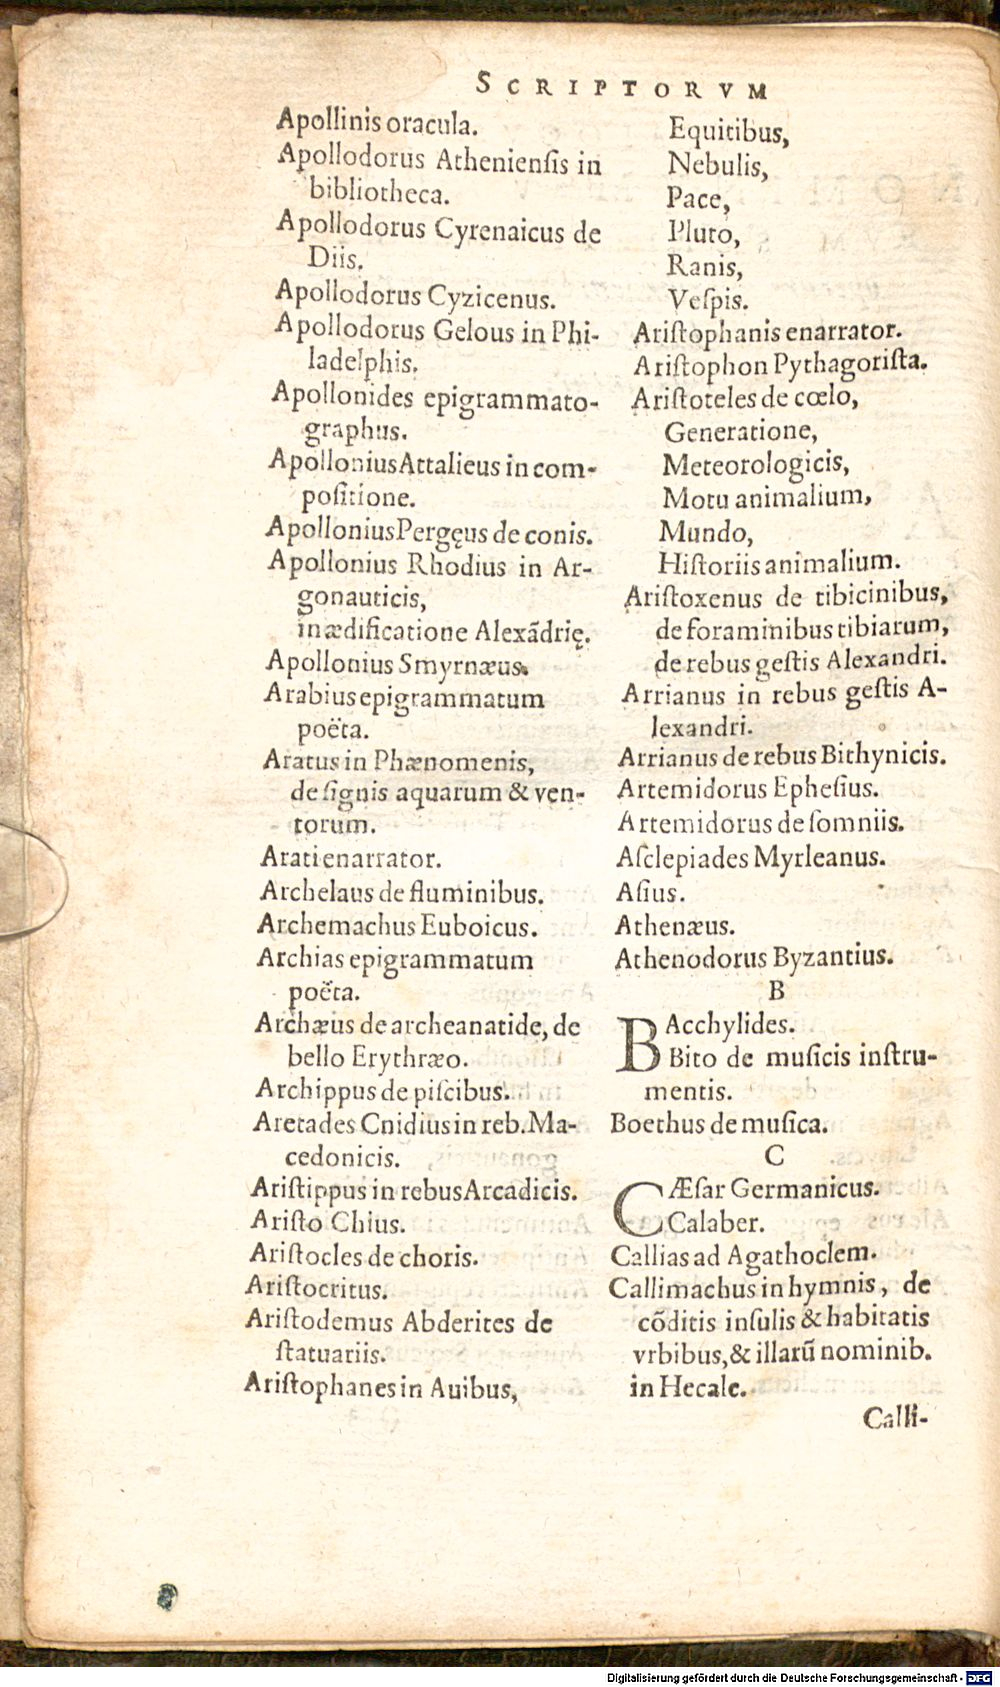 SCRIPTORVM
Apollinis oracula.
Apollodorus Atheniensis in
bibliotheca.
Apollodorus Cyrenaicus de
Diis.
Apollodorus Cyzicenus.
Apollodorus Gelous in Phi-
ladelphis.
Apollonides epigrammato-
graphus.
Apollonius Attalieus in com-
positione.
Apollonius Pergęus de conis.
Apollonius Rhodius in Ar-
gonauticis,
in ædificatione Alexãdrię.
Apollonius Smyrnæus.
Arabius epigrammatum
poëta.
Aratus in Phænomenis,
de signis aquarum & ven-
torum.
Arati enarrator.
Archelaus de fluminibus.
Archemachus Euboicus.
Archias epigrammatum
poëta.
Archæus de archeanatide, de
bello Erythræo.
Archippus de piſcibus.
Aretades Cnidius in reb. Ma-
cedonicis.
Ariſtippus in rebus Arcadicis.
Ariſto Chius.
Ariſtocles de choris.
Ariſtocritus.
Ariſtodemus Abderites de
ſtatuariis.
Ariſtophanes in Auibus,
Equitibus,
Nebulis,
Pace,
Pluto,
Ranis,
Veſpis.
Ariſtophanis enarrator.
Ariſtophon Pythagoriſta.
Ariſtoteles de cœlo,
Generatione,
Meteorologicis,
Motu animalium,
Mundo,
Hiſtoriis animalium.
Ariſtoxenus de tibicinibus,
de foraminibus tibiarum,
de rebus geſtis Alexandri.
Arrianus in rebus geſtis A-
lexandri.
Arrianus de rebus Bithynicis.
Artemidorus Epheſius.
Artemidorus de ſomniis.
Aſclepiades Myrleanus.
Aſius.
Athenæus.
Athenodorus Byzantius.
B
BAcchylides.
Bito de muſicis inſtru-
mentis.
Boethus de muſica.
C
CÆſar Germanicus.
Calaber.
Callias ad Agathoclem.
Callimachus in hymnis, de
cõditis inſulis & habitatis
vrbibus, & illarũ nominib.
in Hecale.
Calli-
Digitalisierung gefördert durch die Deutsche Forschungsgemeinschaft - DFG